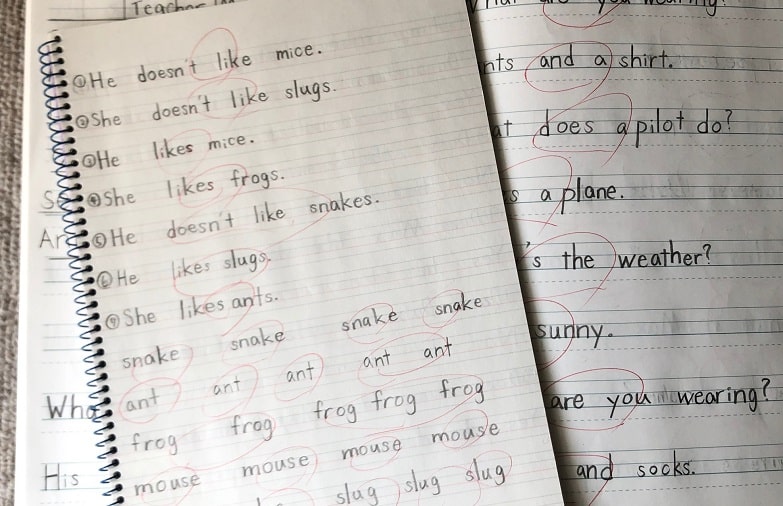 Teacher
①He doesn't like mice.
②She doesn't like slugs.
③He likes mice.
④She likes frogs.
⑤He doesn't like snakes.
⑥He likes slugs.
⑦She likes ants.
snake snake snake snake
ant ant ant ant ant
frog frog frog frog frog
mouse mouse mouse mouse
slug slug slug
His
you wearing?
and a shirt.
does a pilot do?
a plane.
's the weather?
sunny.
are you wearing?
and socks.